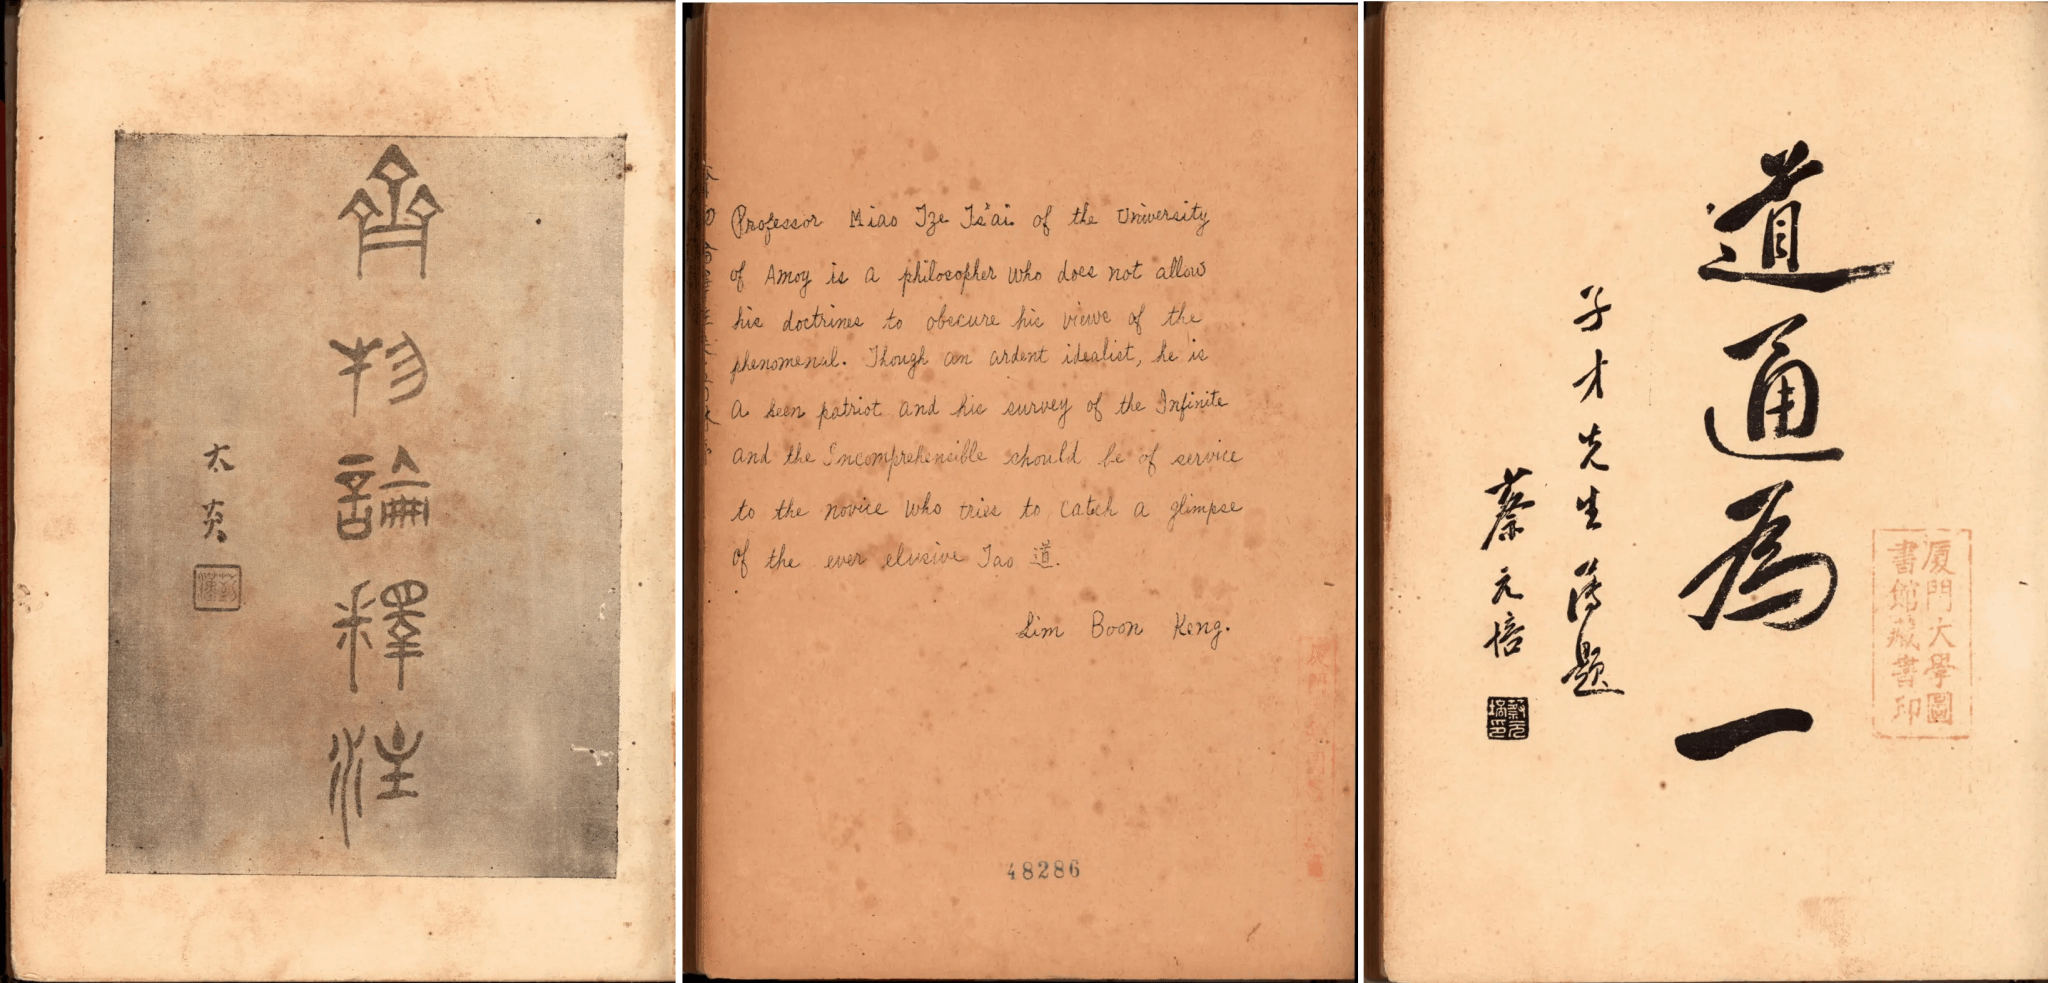 齊物論釋注
太炎
Professor Miao Tze Ts'ai of the University
of Amoy is a philosopher who does not allow
his doctrines to obscure his views of the
phenomenal. Though an ardent idealist, he is
a keen patriot and his survey of the Infinite
and the Incomprehensible should be of service
to the novice who tries to catch a glimpse
of the ever elusive Tao 道.
Lim Boon Keng.
48286
道通為一
子才先生 題
蔡元培
蔡元培印
厦門大學圖
書館藏書印